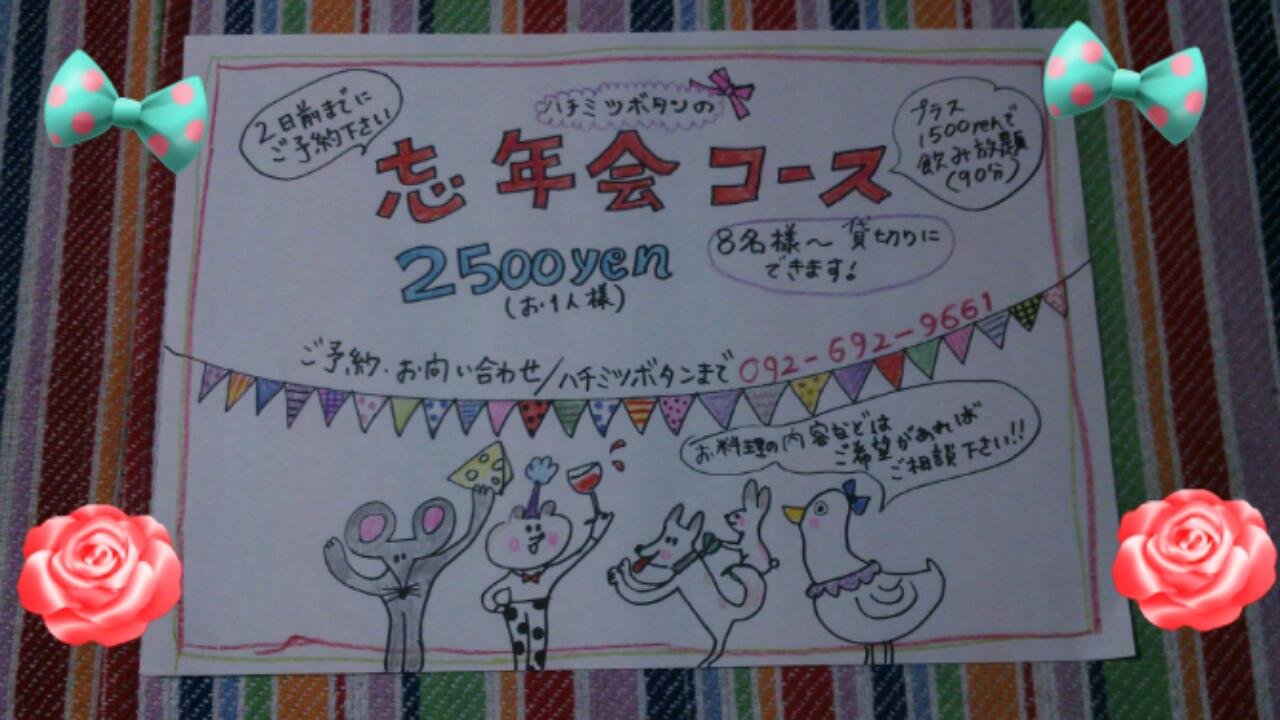 2日前までに
ご予約下さい
ハチミツボタンの
忘年会コース
プラス
1500yenで
飲み放題
(90分)
2500yen
(お1人様)
8名様～貸切りに
できます!
ご予約・お問い合わせ/ハチミツボタンまで 092-692-9661
お料理の内容などは
ご希望があれば
ご相談下さい!!